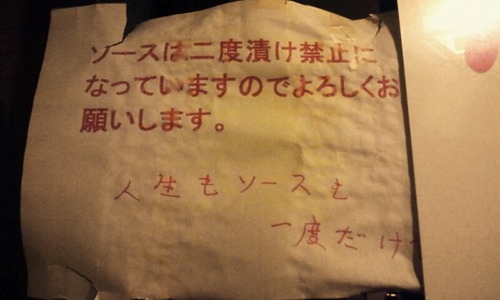 ソースは二度漬け禁止に
なっていますのでよろしくお
願いします。
人生もソースも
一度だけ